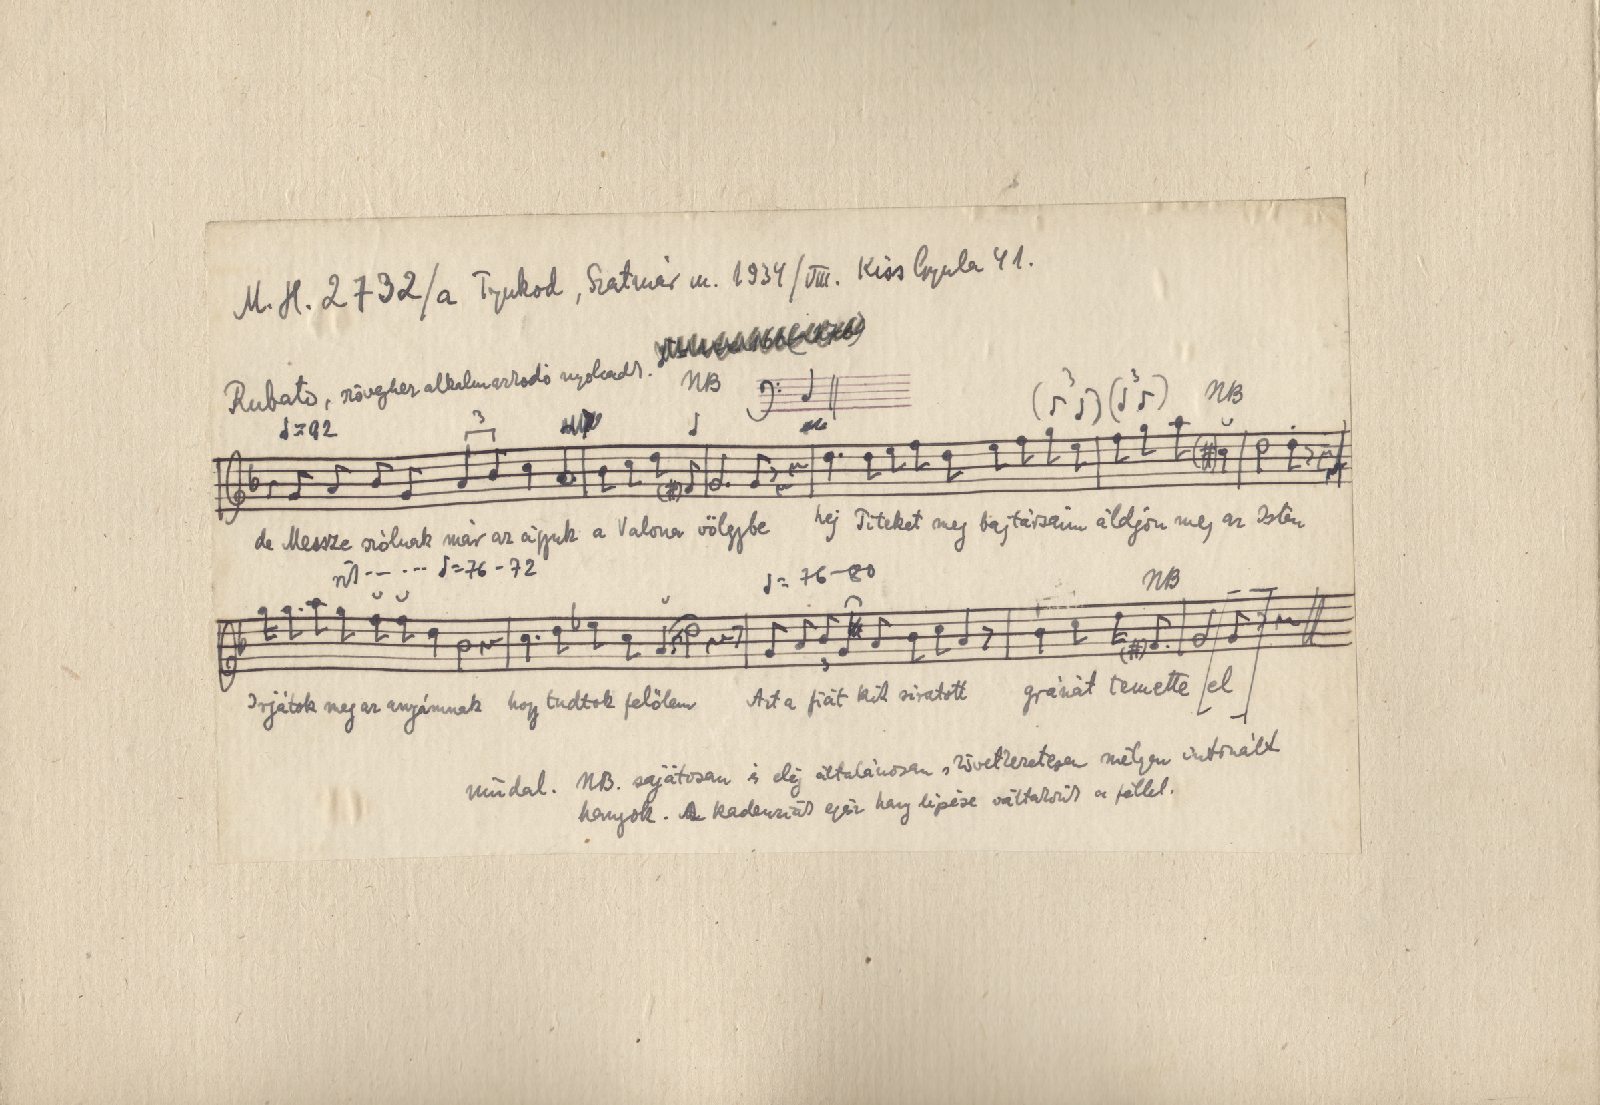 M. H. 2732/a Tyukod, Szatmár m. 1934/VIII. Kiss Gyula 41.
Rubato, szöveghez alkalmazkodó nyolcadr.
NB
♩=92
3
3
3
NB
de Messze szólnak már az ágyuk a Valona völgybe hej Titeket meg bajtársaim áldjon meg az Isten
rit --- ♩=76-72
♩=76-80
NB
3
Irjátok meg az anyámnak hogy tudtok felőlem Azt a fiát kit siratott gránát temette [el]
műdal. NB. sajátosan és elég általánosan, következetesen mélyen intonált
hangok. A kadenciás egész hang lépése váltakozik a féllel.